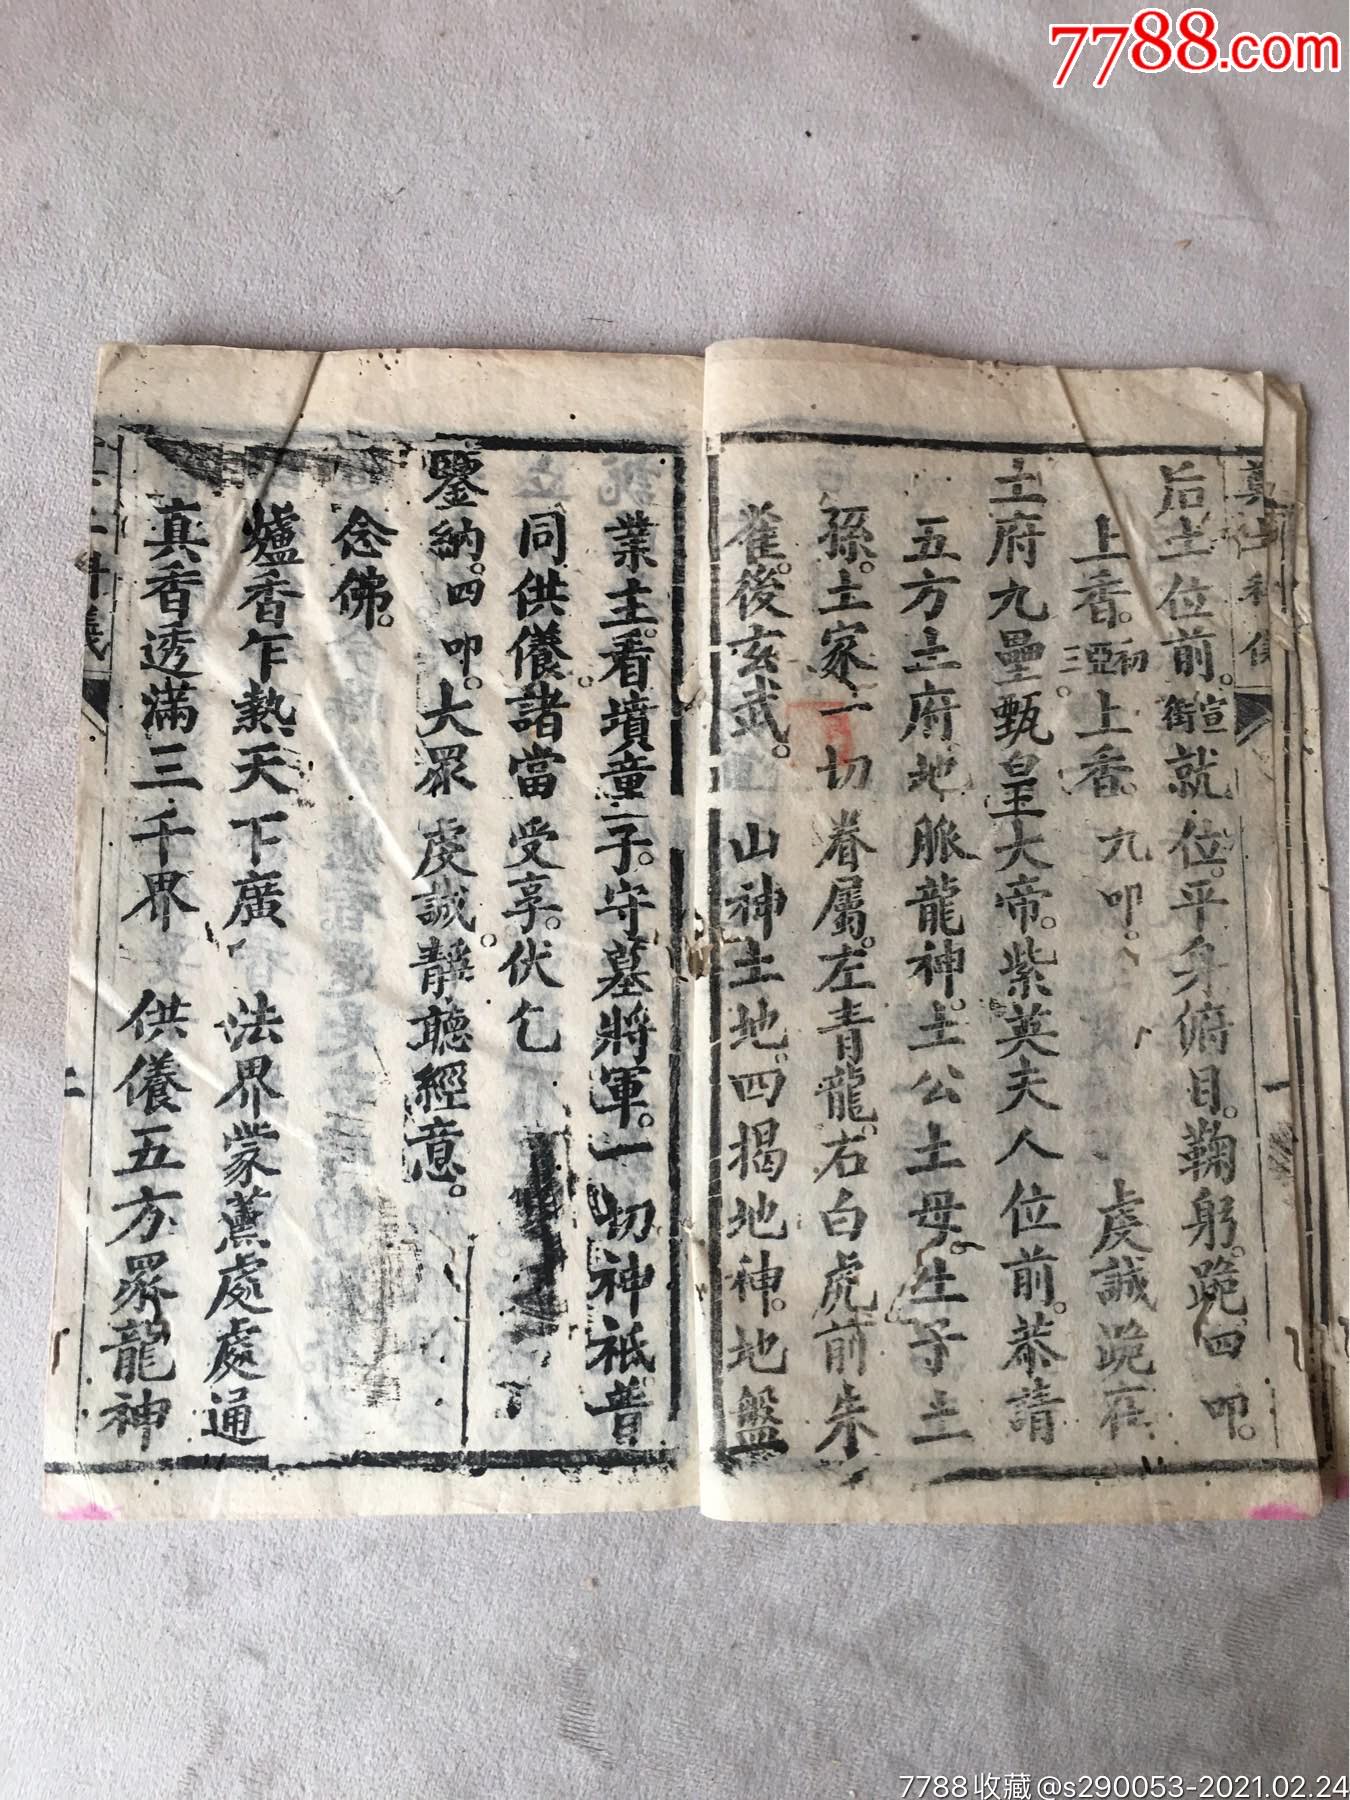 7788.com
后土位前。宣銜就位。平身俯目。鞠躬。跪四叩。
上香。初亞三上香。九叩。虔誠跪在
土府九壘甄皇大帝。紫英夫人位前。恭請
五方土府地脈龍神。土公土母。土子土
孫。土家一切眷屬。左青龍。右白虎前朱
雀。後玄武。山神土地。四揭地神。地盤
業主。看墳童子。守墓將軍。一切神祇。普
同供養。諸當受享。伏乞
鑒納。四叩。大眾虔誠。靜聽經意。
念佛。
爐香乍熱天下廣 法界蒙薰處處通
真香透滿三千界 供養五方眾龍神
二
7788收藏@s290053-2021.02.24